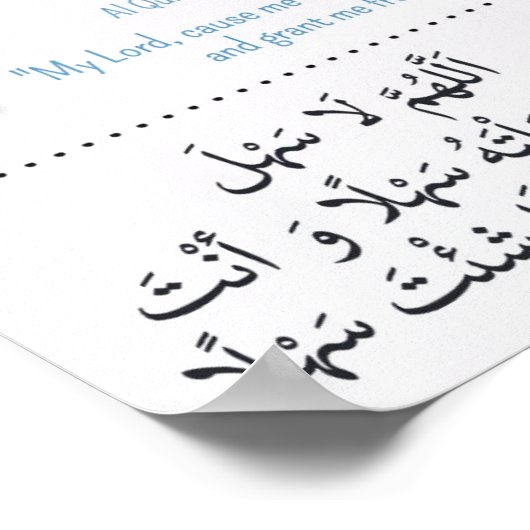 Al
"My Lord, cause me
and grant me
اَللَّهُمَّ لَا سَهْلَ
سُهْلًا وَ أَنْتَ
سَهْلًا